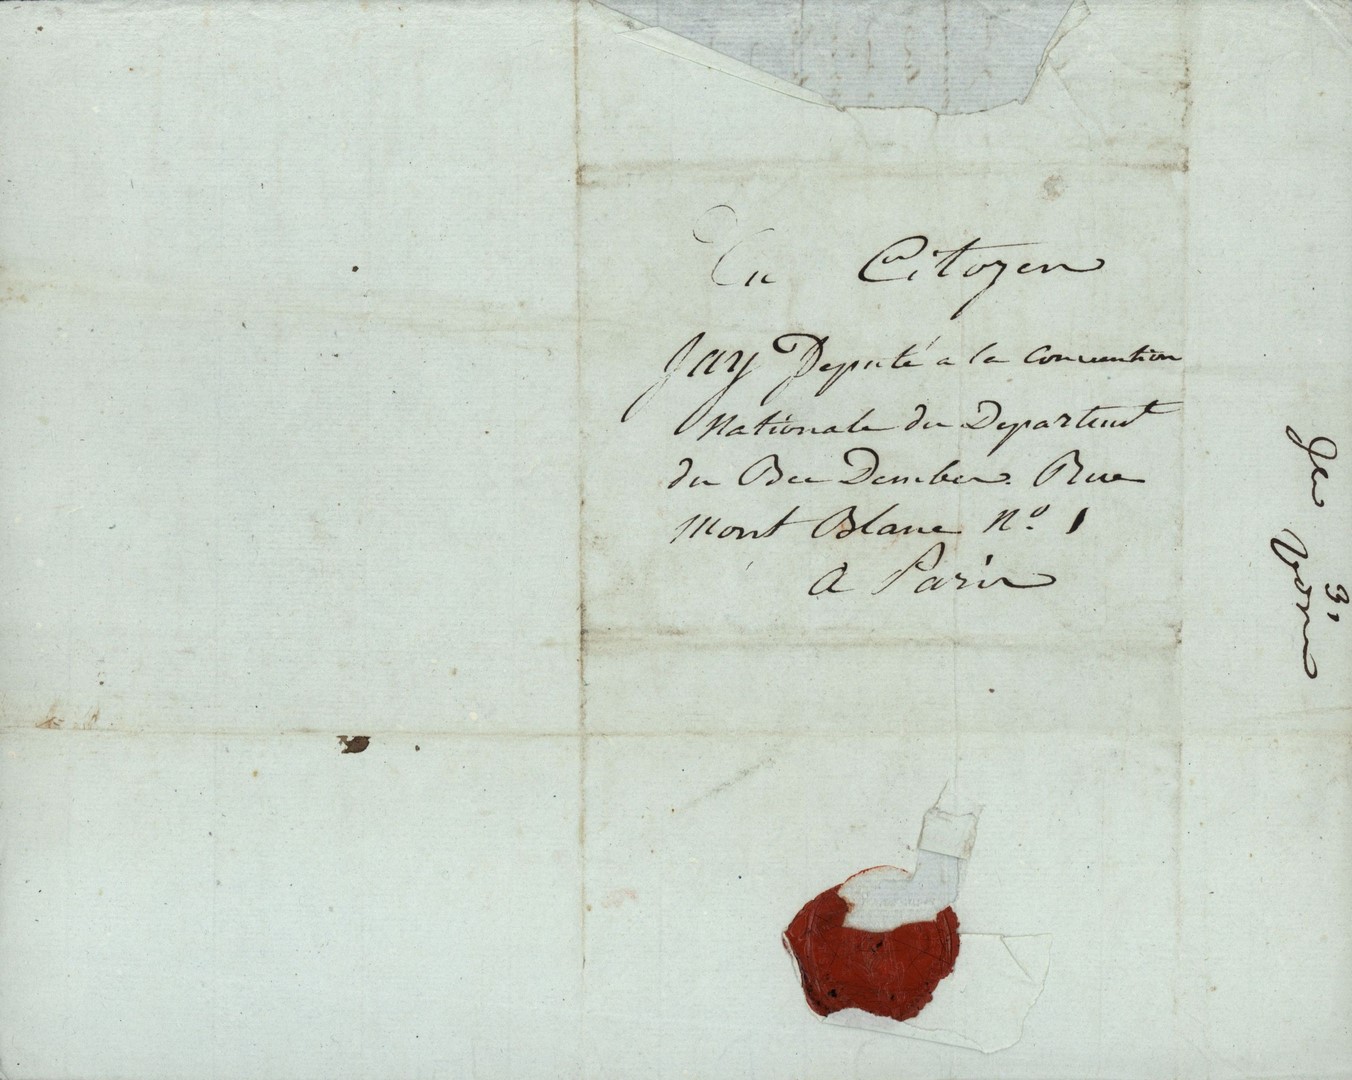 Au Citoyen
Jay Deputé a la Convention
Nationale du Departemt
du Bec Dember. Rue
Mont Blanc No. 1
a Paris
3,